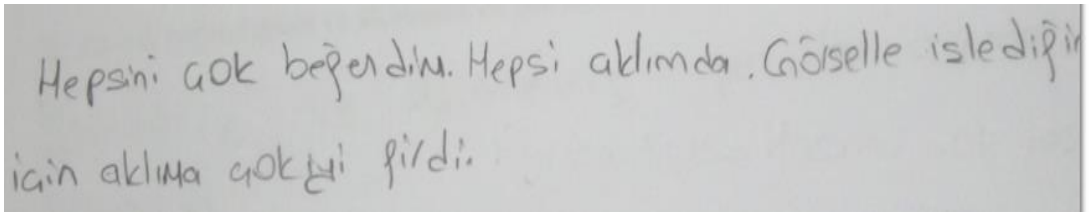 Hepsini çok beğendim. Hepsi aklımda. Görselle işlediğin
için aklıma çok iyi girdi.